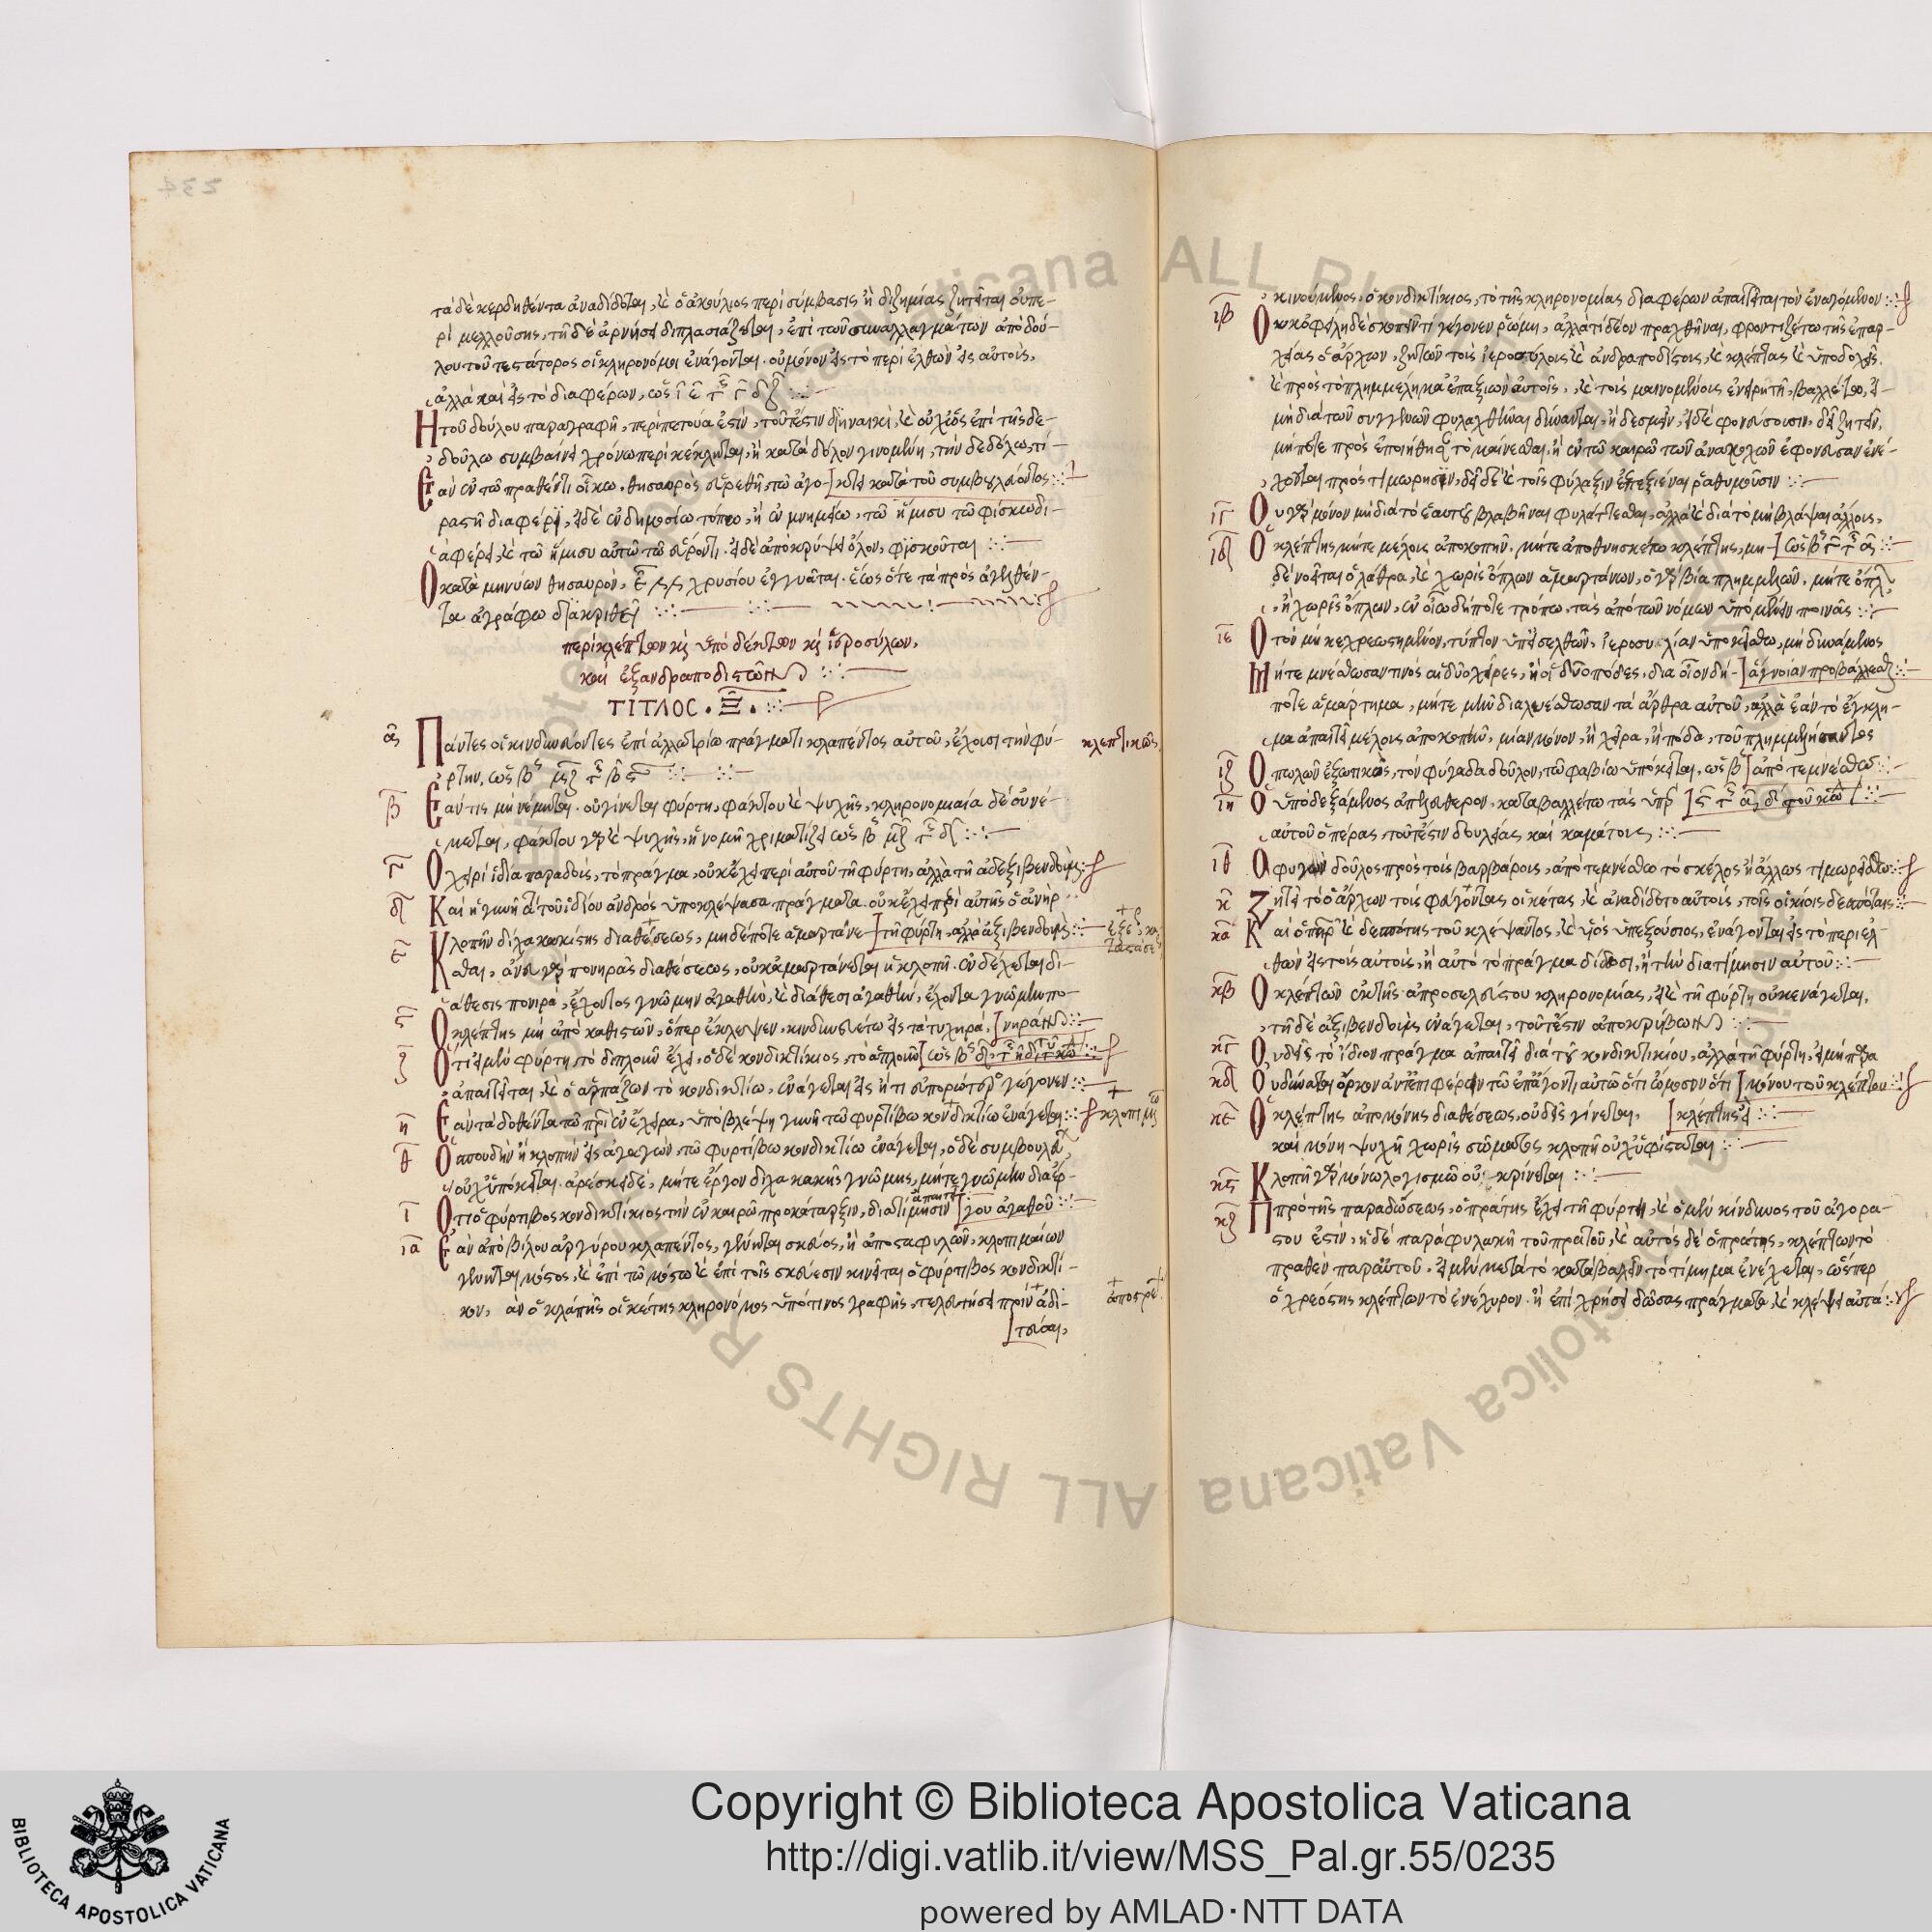 τὰ δὲ κερδηθέντα ἀναδίδοται, καὶ ὁ ἀκούλιος περὶ σύμβασις ἢ διζημίας ζητεῖται οὐ πε-
ρὶ μελλούσης, τῇ δὲ ἀρνήσει διπλασιάζεται, ἐπὶ τῶν συναλλαγμάτων ἀπὸ δού-
λου τοῦ τεστάτορος οἱ κληρονόμοι ἐνάγονται. οὐ μόνον εἰς τὸ περιελθὸν εἰς αὐτοὺς,
ἀλλὰ καὶ εἰς τὸ διαφέρων,
Η τοῦ δούλου παραγραφὴ, περιπετουά ἐστιν, τουτέστιν διηνεκὴ, καὶ οὐχ ὡς ἐπὶ τῆς δε-
δούλω συμβαίνει χρόνω περικέκλεισται, ἢ κατὰ δόλον γινομένη, τὴν δεδόλω, τί-
Εαν ἐν τῶ πραθέντι οἴκω, θησαυρὸς εὑρεθῆ, τῶ ἀγο-[κεῖται κατὰ τοῦ συμβουλεύοντος
ραστῆ διαφέρει, εἰ δὲ ἐν δημοσίω τόπω, ἢ ἐν μνημείω, τῶ ἥμισυ τῶ φίσκω δι-
αφέρει, καὶ τῶ ἥμισυ αὐτῶ τῶ εὑρόντι. εἰ δὲ ἀποκρύψει ὅλον, φισκοῦται
Ο καταμηνύων θησαυρὸν, χρυσίου ἐγγυᾶται. ἕως ὅτε τὰ πρὸς ἀχθέν-
τα ἀγράφω διακριθεῖ
περὶ κλέπτων καὶ ὑποδέκτων καὶ ἱεροσύλων,
καὶ ἐξανδραποδιστῶν
ΤΙΤΛΟΣ . Ξ .
α Πάντες οἱ κινδυνεύοντες ἐπὶ ἀλλοτρίω πράγματι κλαπέντος αὐτοῦ, ἔχουσι τὴν φύ- κλεπτικῶς
ρτην, ὡς
β Εαν τις μὴ νέμηται. οὐ γίνεται φύρτη, φάκτου καὶ ψυχῆς, κληρονομιαία δὲ οὐ νέ-
μεται, φάκτου γὰρ καὶ ψυχῆς, ἡ νομὴ χρηματίζει
γ Ο χειρὶ ἰδία παραδοὺς, τὸ πρᾶγμα, οὐκ ἔχει περὶ αὐτοῦ τὴν φύρτη, ἀλλὰ τὴ ἀδεξιβενδουμ
δ Και ἡ γυνὴ ἀπὸ τοῦ ἰδίου ἀνδρὸς ὑποκλέψασα πράγματα. οὐκ ἔχει περὶ αὐτῆς ὁ ἀνὴρ
ε Κλοπὴν δίχα κακίστης διαθέσεως, μηδέποτε ἁμαρτάνε-[τὴ φύρτη, ἀλλὰ ἀξιβενδουμ
σθαι, ἄνευ γὰρ πονηρᾶς διαθέσεως, οὐκ ἁμαρτάνεται ἡ κλοπὴ. ἐνδέχεται δι-
άθεσις πονηρὰ, ἔχοντος γνώμην ἀγαθὴν, καὶ διάθεσι ἀγαθὴν, ἔχοντα γνώμην πο-
ς Ο κλέπτης μὴ ἀποκαθιστῶν, ὅπερ ἔκλεψεν, κινδυνευέτω εἰς τὰ τυχηρά, [νηράν
ζ Οτι εἰ μὲν φύρτη, τὸ διπλοῦν ἔχει, ὁ δὲ κονδικτίκιος, τὸ ἁπλοῦν
ἀπαιτεῖται, καὶ ὁ ἁρπάζων τὸ κονδικτίω, ἐνάγεται εἰς ἥτι εὐπορώτερος γέγονεν
η Εαν τὰ δοθέντα τῶ πρὶ ἐνέχειρα, ὑποβλέψη γυνὴ τῶ φυρτίβω κονδικτίω ἐνάγεται κλοπιμαίω
θ Ο σπουδὴν ἢ κλοπὴν εἰσαγαγὼν, τῶ φυρτίβω κονδικτίω ἐνάγεται, ὁ δὲ συμβουλῆ,
οὐχ ὑπόκειται. ἀρέσκει δὲ, μήτε ἔργον δίχα κακῆς γνώμης, μήτε γνώμην διὰ ἔρ-
ι Οτι ὁ φύρτιβος κονδικτίκιος τὴν ἐν καιρῶ προκάταρξιν, διατίμησιν [γου ἀγαθοῦ
ια Εαν ἀπὸ βίλου ἀργύρου κλαπέντος, γένηται σκεῦος, ἢ ἀπὸ σταφυλῶν, κλοπιμαίων
γένηται μοῦστος, καὶ ἐπὶ τῶ μούστω καὶ ἐπὶ τοῖς σκεύεσιν κινεῖται ὁ φύρτιβος κονδικτί-
κον, ἂν ὁ κλαπεὶς οἰκέτης κληρονόμος ὑπό τινος γραφῆς, τελευτήσει πρὶν ἀδι-
[τεύσαι,
κινούμενος, ὁ κονδικτίκιος, τὸ τῆς κληρονομίας διαφέρων ἀπαιτεῖται τὸν ἐναγόμενον
ιβ Ουκ ὀφείλη δὲ σκοπεῖν τί γέγονεν ῥώμη, ἀλλὰ τί δέον πραχθῆναι, φροντιζέτω τῆς ἐπαρ-
χίας ὁ ἄρχων, ζητῶν τοὺς ἱεροσύλους καὶ ἀνδραποδιστὰς, καὶ κλέπτας καὶ ὑποδοχεῖς.
καὶ πρὸς τὸ πλημμέλημα ἐπαξιῶν αὐτοῖς, καὶ τοῖς μαινομένοις ἐν εἱρκτῆ, βαλλέτω, εἰ-
μὴ διὰ τῶν συγγενῶν φυλαχθῆναι δύνανται, ἢ δεσμεῖν, εἰ δὲ φονεύσουσιν, δεῖ ζητεῖν,
μήποτε προσεποιήθη τὸ μαίνεσθαι, ἢ ἐν τῶ καιρῶ τῶν ἀνακωχῶν ἐφόνευσαν ἐνέ-
χονται πρὸς τιμωρησίν, δεῖ δὲ καὶ τοῖς φύλαξιν ἐπεξιέναι ῥαθυμοῦσιν
ιγ Ου γὰρ μόνον μὴ διὰ τὸ ἑαυτοῦ βλαβῆναι φυλάττεσθαι, ἀλλὰ καὶ διὰ τὸ μὴ βλάψαι ἄλλους,
ιδ Ο κλέπτης μήτε μέλους ἀποκοπὴν. μήτε ἀποθνησκέτω κλέπτης, μη-
δὲ νοεῖται ὁ λάθρα, καὶ χωρὶς ὅπλων ἁμαρτάνων, ὁ γὰρ βία πλημμελῶν. μήτε ὅπλ
ἢ χωρὶς ὅπλων, ἐν οἱωδήποτε τρόπω, τὰς ἀπὸ τῶν νόμων ὑπομένειν ποινὰς
ιε Ο τὸν μὴ κεχρεωστημένον, τύπτων ὑπεισελθὼν, ἱεροσυλίαν ὑποκείσθω, μὴ δυνάμενος
Μήτε μνεάσθωσαν τινὸς αἱ δύο χεῖρες, ἢ οἱ δύο πόδες, δια οἱονδή-[ἄγνοιαν προβάλλεσθαι
ποτε ἁμάρτημα, μήτε μὲν διαλυέσθωσαν τὰ ἄρθρα αὐτοῦ, ἀλλὰ ἐὰν τὸ ἔγκλη-
μα ἀπαιτεῖ μέλους ἀποκοπὴν, μίαν μόνον, ἢ χεῖρα, ἢ πόδα, τοῦ πλημμελήσαντος
ιζ Ο πωλῶν ἐξωτικῶς, τὸν φυγάδα δοῦλον, τῶ φαβίω ὑπόκειται, [ἀποτεμνέσθω
ιη Ο ὑποδεξάμενος ἀπελεύθερον, καταβαλλέτω τὰς ὑπὲρ
αὐτοῦ ὀπέρας, τουτέστιν δουλείας καὶ καμάτους
ιθ Ο φυγὼν δοῦλος πρὸς τοὺς βαρβάρους, ἀποτεμνέσθω τὸ σκέλος ἢ ἄλλως τιμωρείσθω
κ Ζητεῖτο ὁ ἄρχων τοὺς φεύγοντας οἰκέτας, καὶ ἀναδίδοτο αὐτοὺς, τοῖς οἰκείοις δεσπόταις
κα Και ὁ πατὴρ καὶ δεσπότης τοῦ κλέψαντος, καὶ υἱὸς ὑπεξούσιος, ἐνάγονται εἰς τὸ περιελ-
θὼν εἰς τοὺς αὐτοὺς, ἢ αὐτὸ τὸ πρᾶγμα δίδοσι, ἢ τὴν διατίμησιν αὐτοῦ
κβ Ο κλέπτων ἐκ τῆς ἀπροσελεύστου κληρονομίας, εἰ καὶ τὴ φύρτη οὐκ ἐνάγεται,
τῆ δὲ ἀξιβενδουμ ἐνάγεται, τουτέστιν ἀποκρύβων
κγ Ουδεὶς τὸ ἴδιον πρᾶγμα ἀπαιτεῖ διὰ τοῦ κονδικτικίου, ἀλλὰ τὴ φύρτη, εἰ μὴ παρα
κδ Ου δύναται ὅρκον ἀντεπιφέρειν τῶ ἐπάγοντι αὐτῶ ὅτι ὤμοσον ὅτι [μόνου τοῦ κλέπτου
κε Ο κλέπτης ἀπὸ μόνης διαθέσεως, οὐδεὶς γίνεται, [κλέπτης εἶ
καὶ μόνη ψυχῆ χωρὶς σώματος κλοπὴ οὐχ ὑφίσταται
κς Κλοπὴ γὰρ μόνω λογισμῶ οὐ κρίνεται
κζ Προ τῆς παραδώσεως, ὁ πράτης ἔχει τὴ φύρτη, καὶ ὁ μὲν κίνδυνος τοῦ ἀγορα-
στου ἐστὶν, ἡ δὲ παραφυλακὴ τοῦ πράτου, καὶ αὐτὸς δὲ ὁ πράτης, κλέπτων τὸ
πραθὲν παρ' αὐτοῦ. εἰ μὲν μετὰ τὸ καταβαλεῖν τὸ τίμημα ἐνέχεται, ὥσπερ
ὁ χρεώστης κλέπτων τὸ ἐνέχυρον. ἢ ἐπὶ χρήσει δώσας πράγματα, καὶ κλέψει αὐτά
Copyright © Biblioteca Apostolica Vaticana
http://digi.vatlib.it/view/MSS_Pal.gr.55/0235
powered by AMLAD·NTT DATA
BIBLIOTECA APOSTOLICA VATICANA